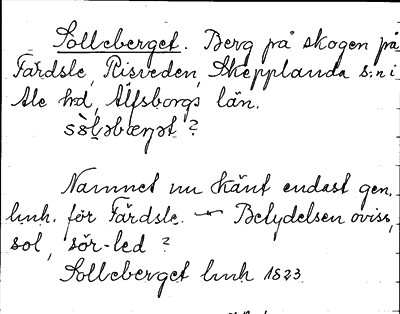 Solleberget. Berg på skogen på
Färdsle, Risveden, Skepplanda s:n i
Ale hd, Älfsborgs län.
sòl̥əbærjət ?
Namnet nu känt endast gen.
lmh. för Färdsle. — Betydelsen oviss,
sol, sör-led ?
Solleberget lmh 1823